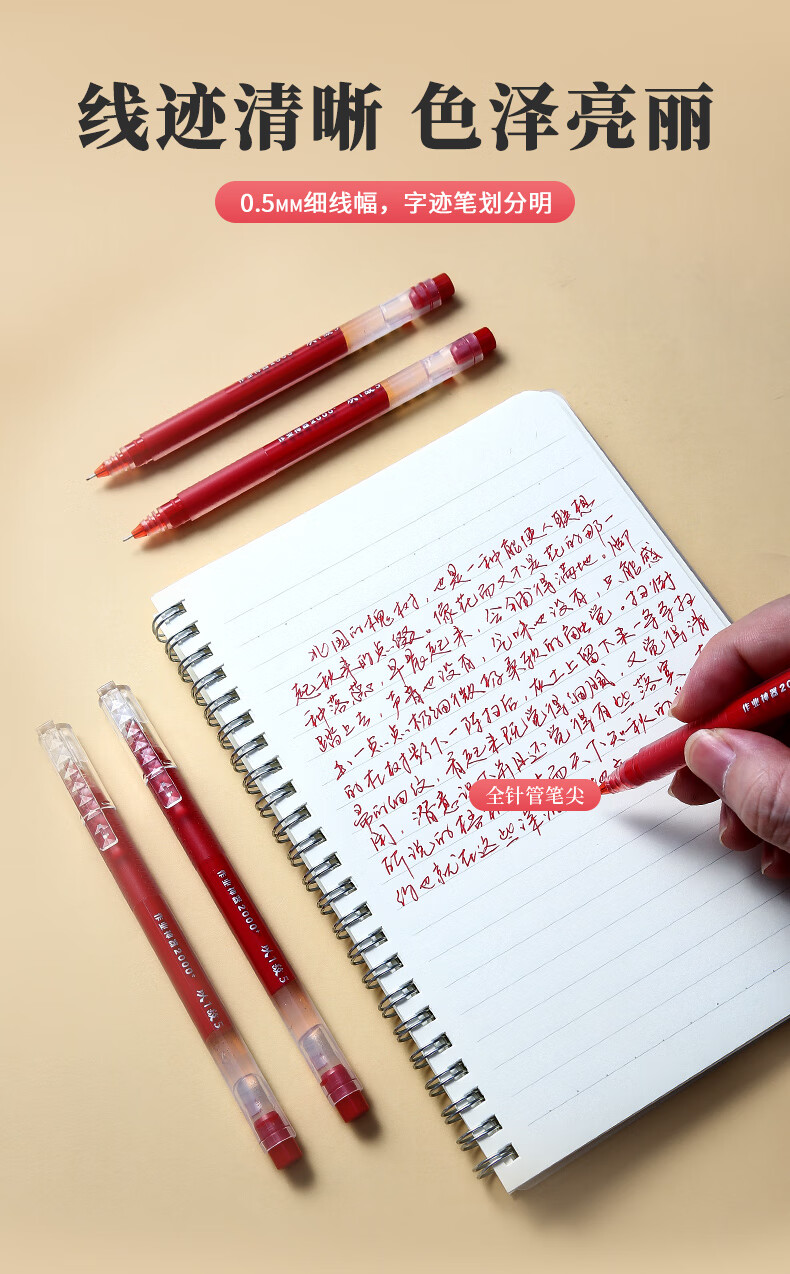 线迹清晰 色泽亮丽
0.5MM细线幅，字迹笔划分明
作业神器2000+
作业神器2000+
北国的槐树，也是一种能使人联想
起秋来的点缀。像花而又不是花的那一
种落蕊，早晨起来，会铺得满地。脚
踏上去，声音也没有，气味也没有，只能感
出一点点极细微极柔软的触觉。扫街
的在树影下一阵扫后，灰土上留下来一条条扫
帚的细纹，看起来既觉得细腻，又觉得清
闲，潜意识下并且还觉得有些落寞，
所说的梧 而天下知秋的
约也就在这些深
全针管笔尖
作业神器20
作业神器2000+
作业神器2000+